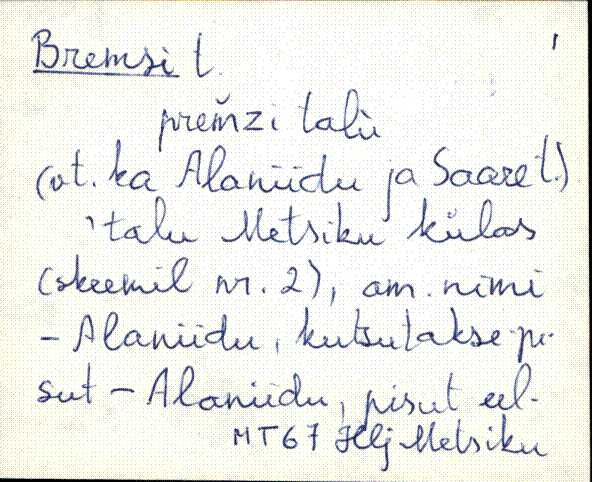 Bremsi t. 1
prem̆zi talù
(vt. ka Alaniidu ja Saare t.)
'talu Metsiku külas
(skeemil nr. 2), am. nimi
- Alaniidu, kutsutakse pi-
sut - Alaniidu, pisut eel-
MT67 Hlj Metsiku